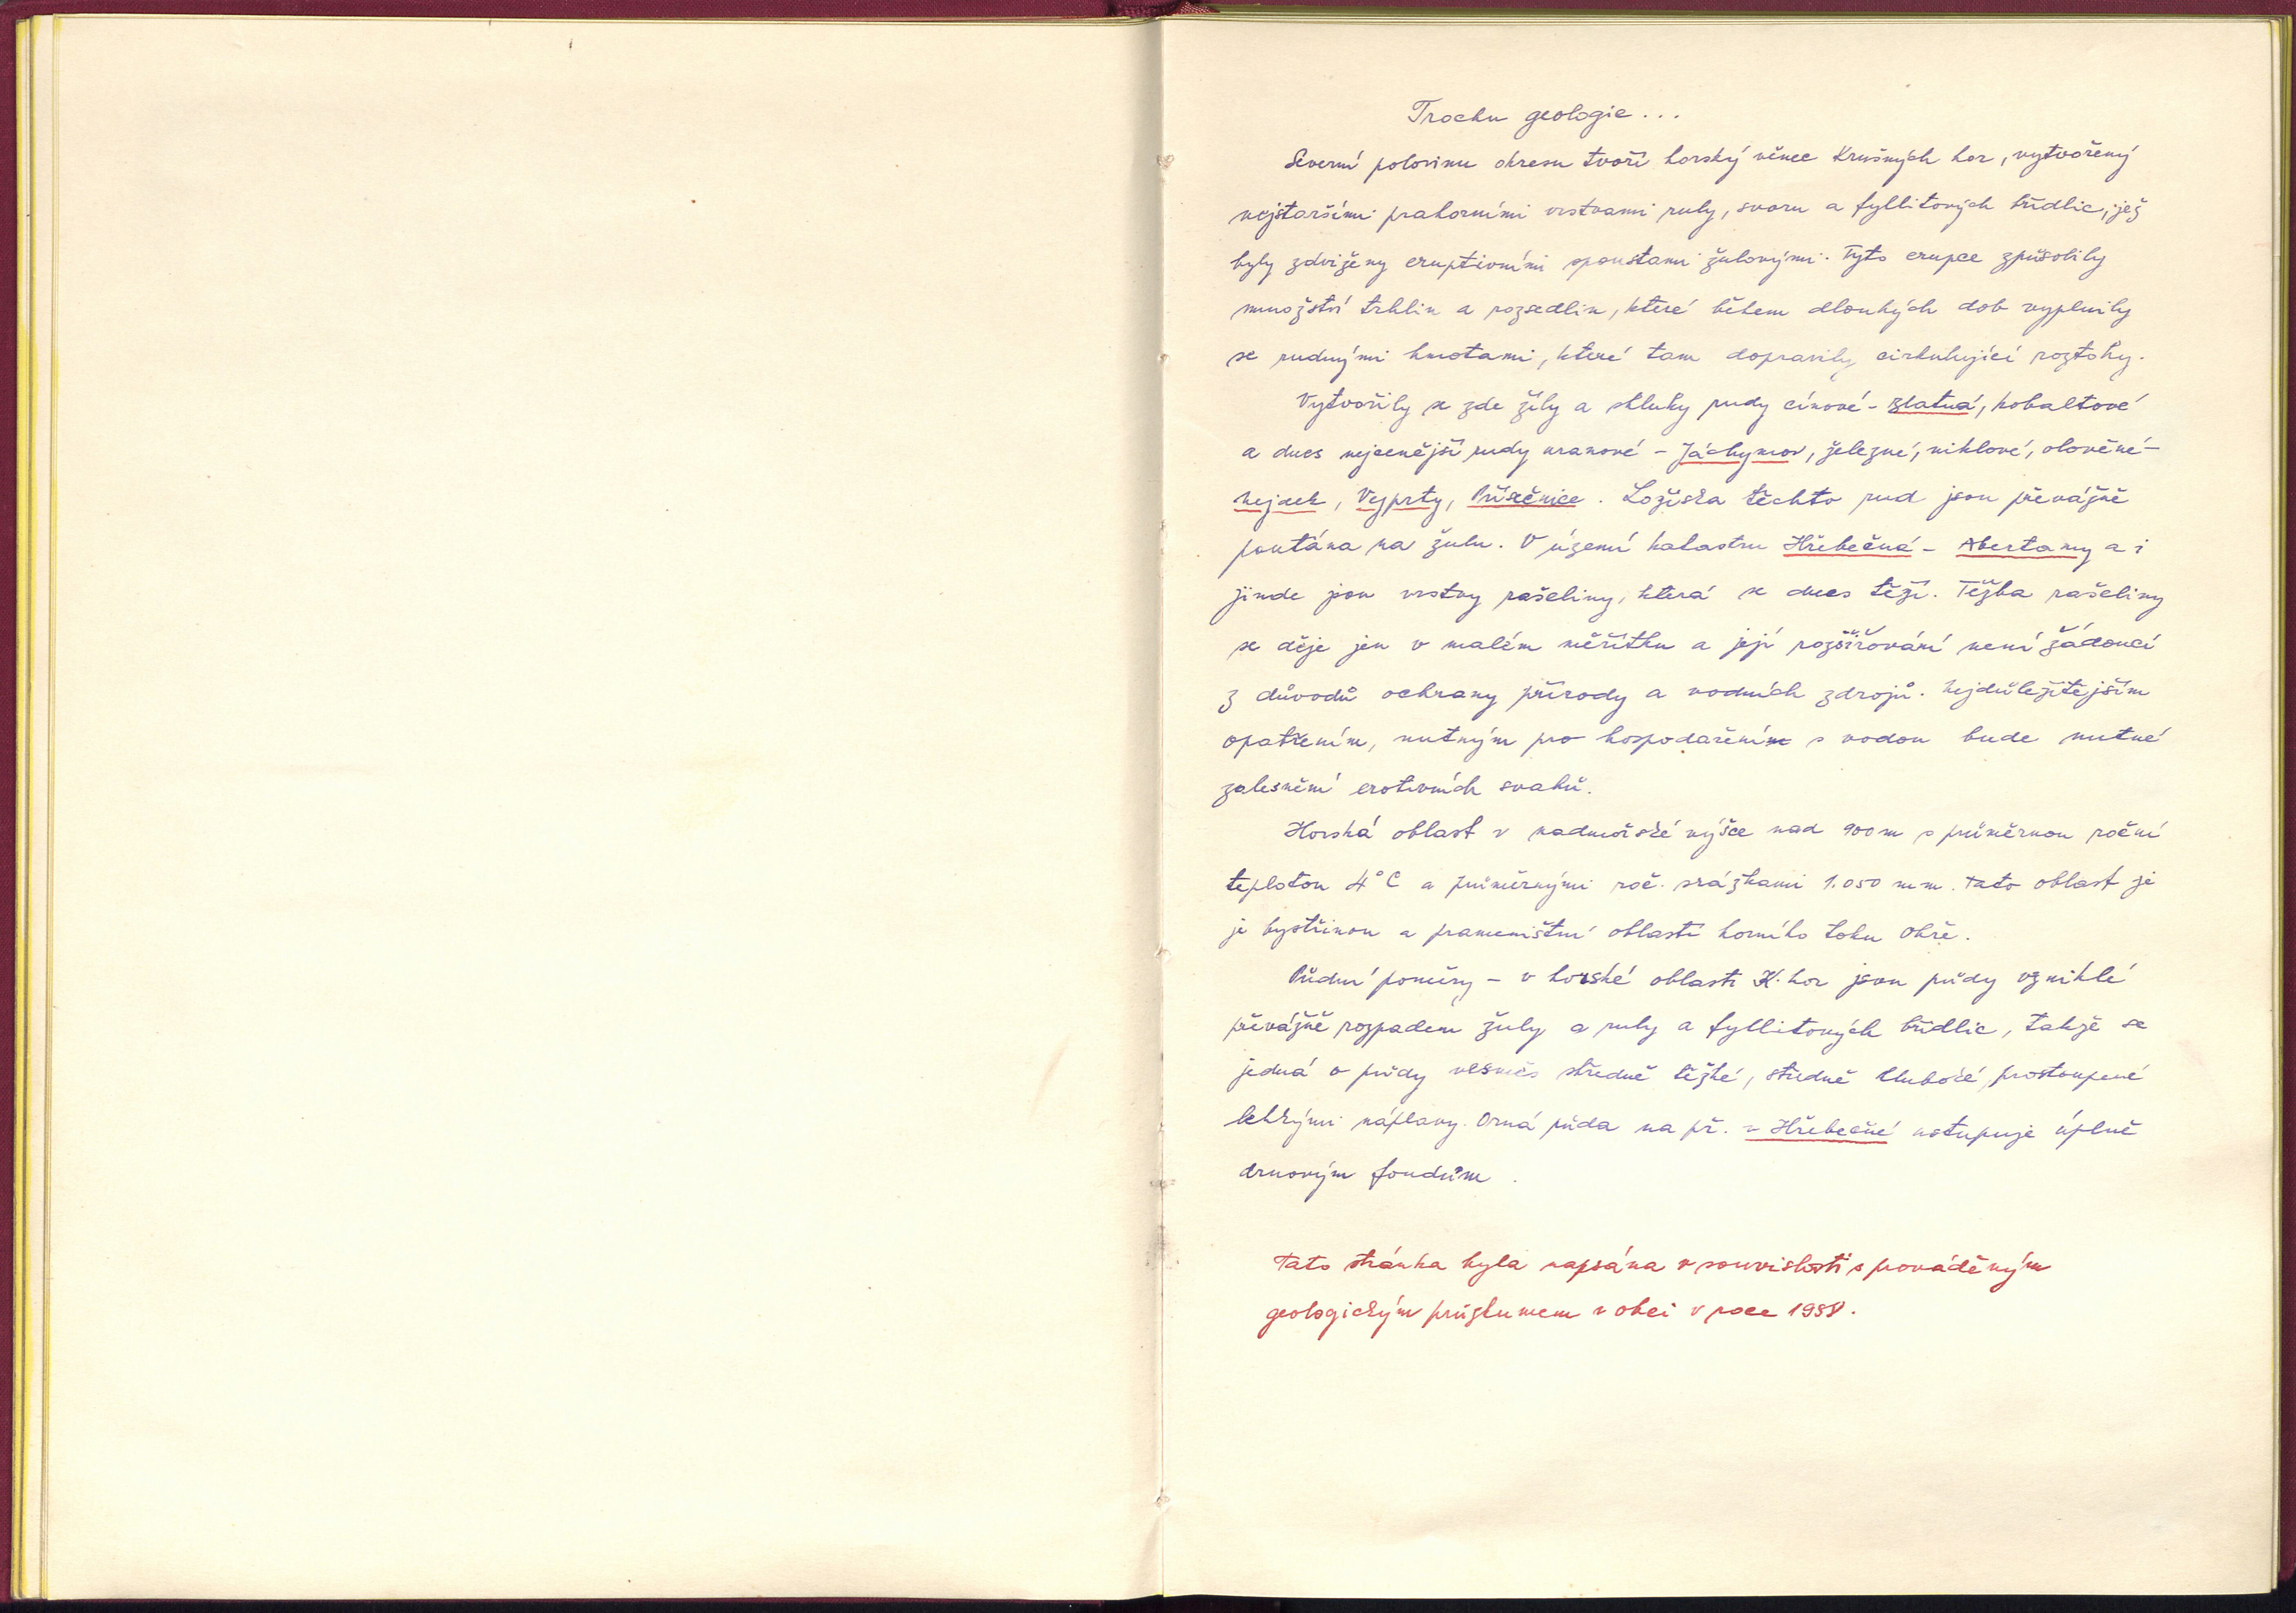 Trochu geologie...
Severní polovinu okresu tvoří horský věnec Krušných hor, vytvořený
nejstaršími prahorními vrstvami ruly, svoru a fyllitových břidlic, jež
byly zdviženy eruptivními spoustami žulovými. Tyto erupce způsobily
množství trhlin a rozsedlin, které během dlouhých dob vyplnily
se rudnými hmotami, které tam dopravily cirkulující roztoky.
Vytvořily se zde žíly a shluky rudy cínové - Zlatná, kobaltové
a dnes nejcenější rudy uranové - Jáchymov, železné, niklové, olověné -
Nejdek, Vejprty, Přísečnice. Ložiska těchto rud jsou převážně
poutána na žulu. V území katastru Hřebečná - Abertamy a i
jinde jsou vrstvy rašeliny, která se dnes těží. Těžba rašeliny
se děje jen v malém měřítku a její rozšiřování není žádoucí
z důvodů ochrany přírody a vodních zdrojů. Nejdůležitějším
opatřením, nutným pro hospodařením s vodou bude nutné
zalesnění erotivních svahů.
Horská oblast v nadmořské výšce nad 900 m s průměrnou roční
teplotou 4°C a průměrnými roč. srážkami 1.050 mm. Tato oblast je
je bystřinou a prameništní oblastí horního toku Ohře.
Půdní poměry - v horské oblasti K. hor jsou půdy vzniklé
převážně rozpadem žuly a ruly a fyllitových břidlic, takže se
jedná o půdy vesměs středně těžké, středně hluboké, prostoupené
lehkými náplavy. Orná půda na př. v Hřebečné ustupuje úplně
drnovým fondům.
Tato stránka byla napsána v souvislosti s prováděným
geologickým průzkumem v obci v roce 1988.